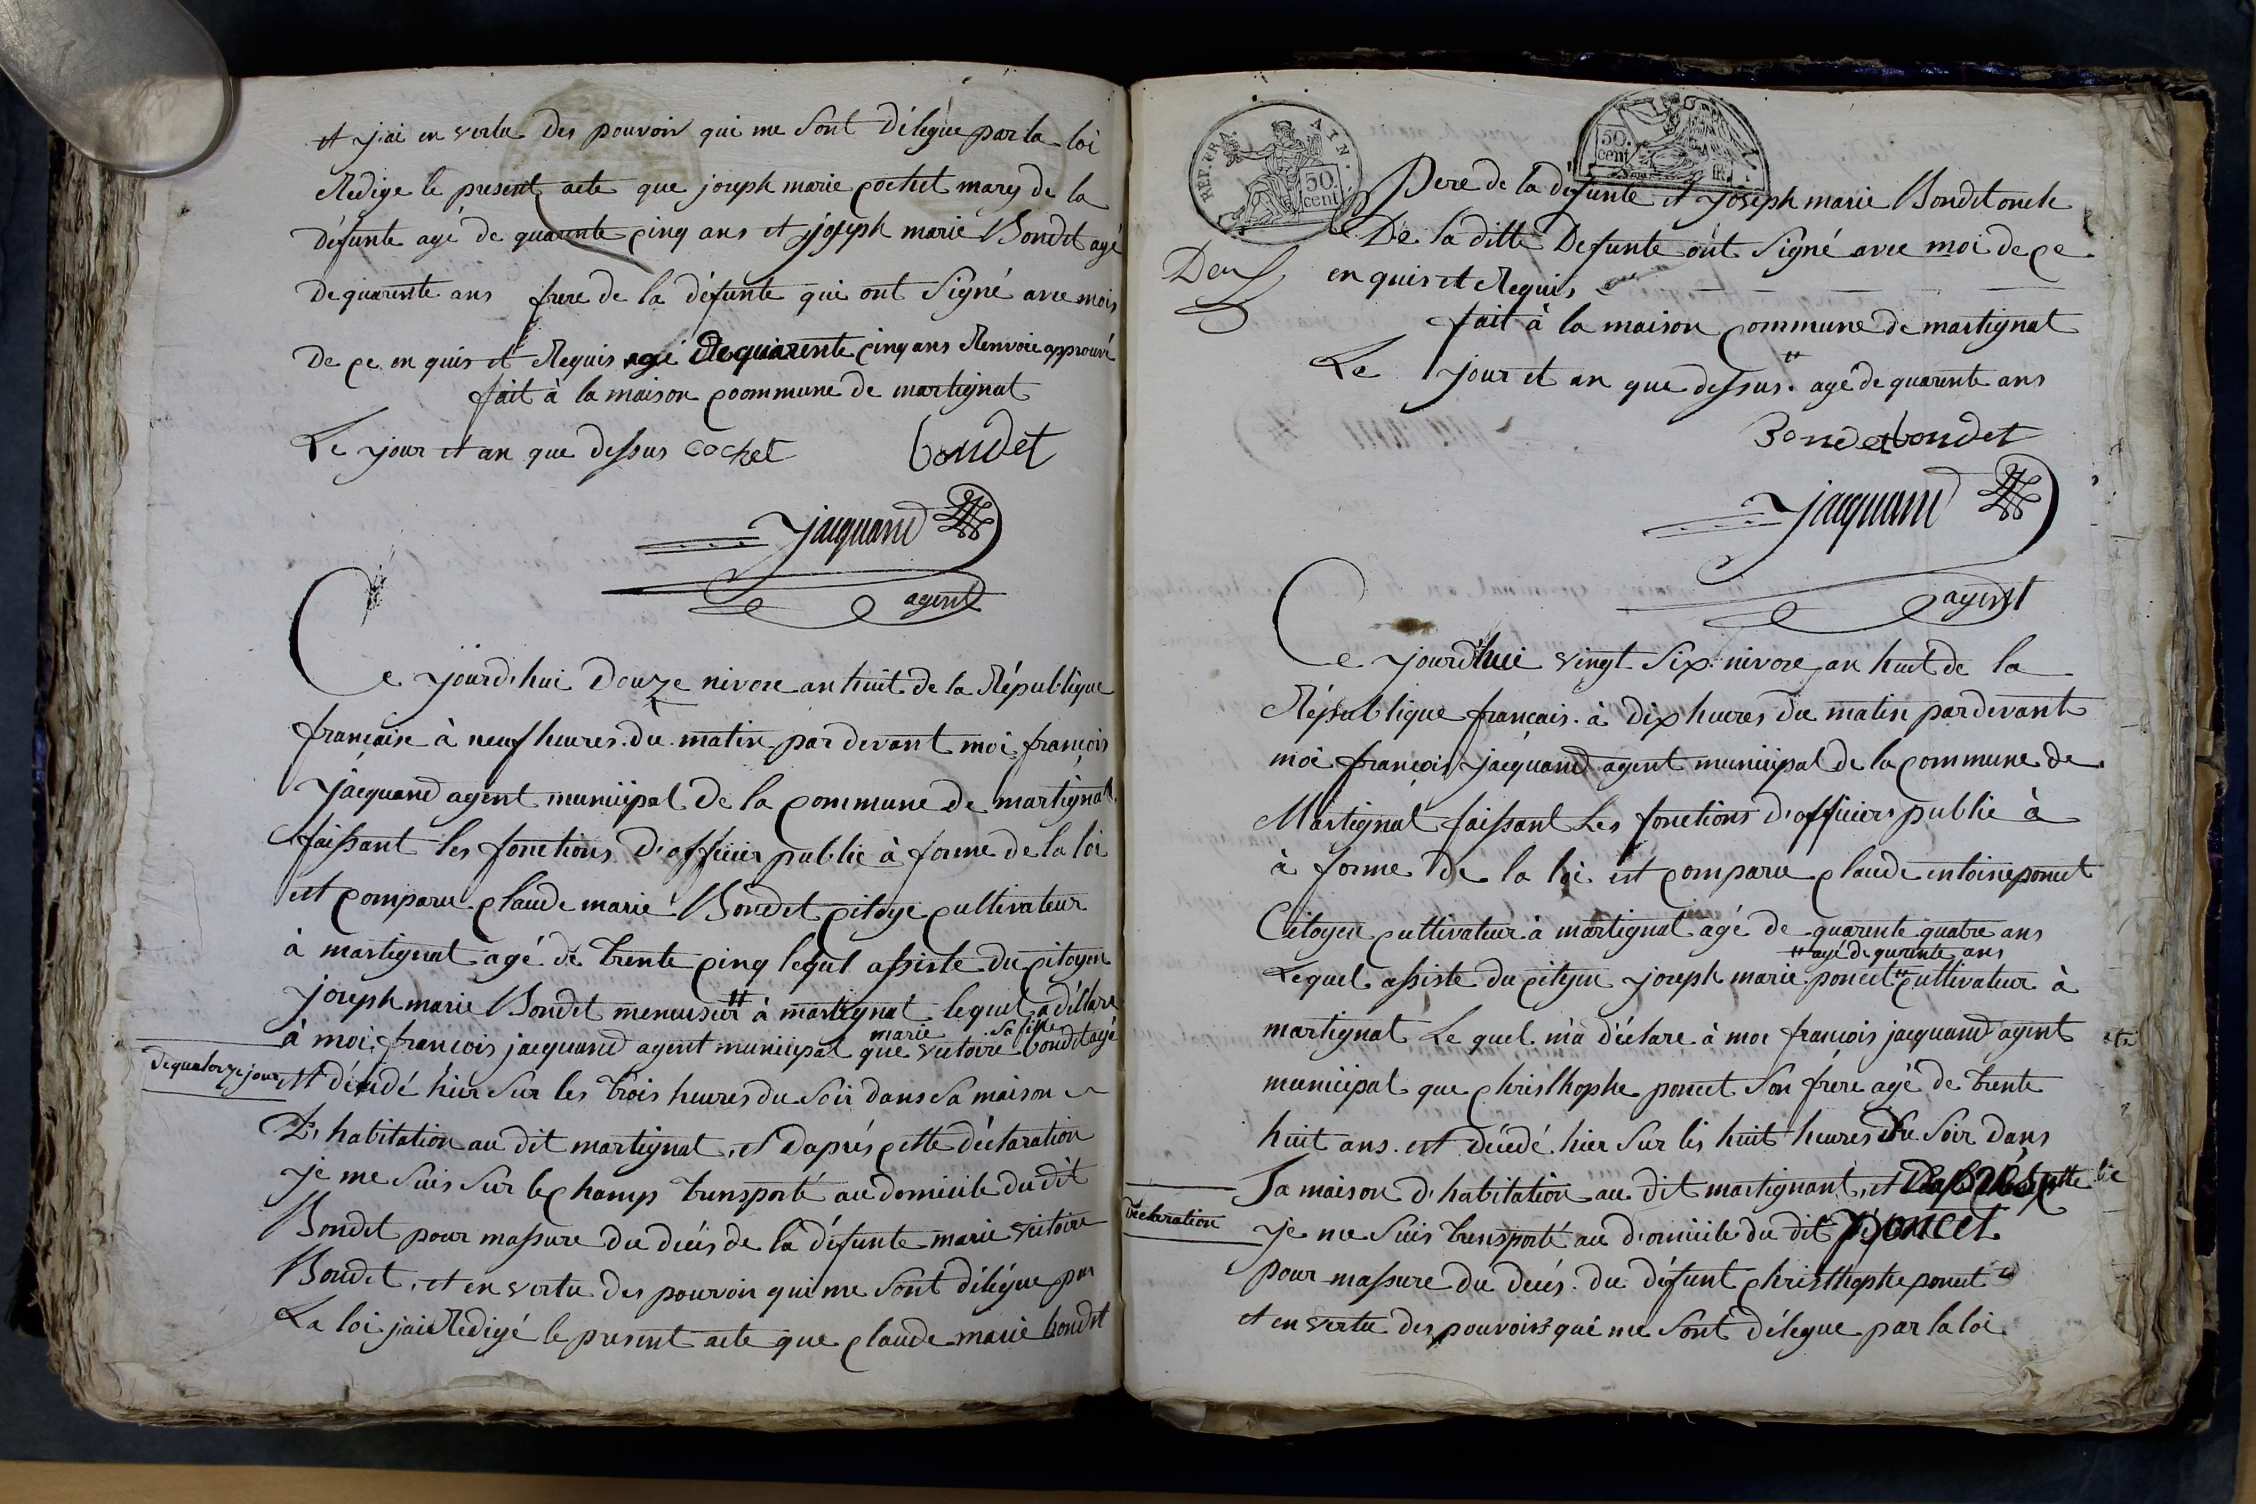 et j'ai en vertu des pouvoir qui me sont délégue par la loi
Redige le present acte que joseph marie cochet mary de la
défunte agé de quarente cinq ans et joseph marie Bondet agé
de quarente ans frere de la défunte qui ont signé avec mois
de ce en quis et Requis agé de quarente cinq ans Renvoie approuvé
fait à la maison coommune de martignat
Le jour et an que dessus cochet bondet
jacquand
agent
Ce yourd'hui douze nivose an huit de la République
française à neuf heures du matin par devant moi françois
jacquand agent municipal de la commune de martignat
faissant les fonctions d'officier public à forme de la loi
est comparu claude marie Bondet citoye cultivateur
à martignat agé de trente cinq lequel assiste du citoyen
joseph marie Bondet menuiseur # à martignat lequel a déclare
marie sa fille
à moi françois jacquand agent municipal que victoire bondet agé
de quatorze jour
est décedé hier sur les trois heures du soir dans sa maison
d'habitation au dit martignat, et d'aprés cette déclaration
je me suis sur le champ transporté au domicile du dit
Bondet pour massure du décés de la défunte marie victoire
Bondet, et en vertu des pouvoir qui me sont délégue par
La loi jai Redigé le present acte que claude marie bondet
REP. FRA. AIN.
50. cent
50. cent
Pere de la défunte et joseph marie Bondet oncle
De la ditte Defunte ont signé avec moi de ce
en quis et Requis
fait à la maison commune de martignat
Le jour et an que dessus. # agé de quarente ans
Bondet bondet
jacquand
agent
Ce jourd'huei vingt six nivose an huit de la
République français à dix heures du matin pardevant
moi françois jacquand agent municipal de la commune de
Martignat faissant Les fonctions d'officiers public à
à forme de la loi est comparu claude entoine poncet
Citoyen cultivateur à martignat agé de quarente quatre ans
# agé de qurente ans
Lequel assiste du citoyen joseph marie poncet # cultivateur à
martignat Le quel m'a déclare à moi françois jacquand agent
municipal que christhophe poncet son frère agé de trente
huit ans est décedé hier sur les huit heures du soir dans
Sa maison d'habitation au dit martignant, et d'aprés cette
declaration
je me suis transporté au domicile du dit poncet
pour massure du decés du défunt christhophe poncet
et en vertu des pouvoirs qui me sont délegue par la loi